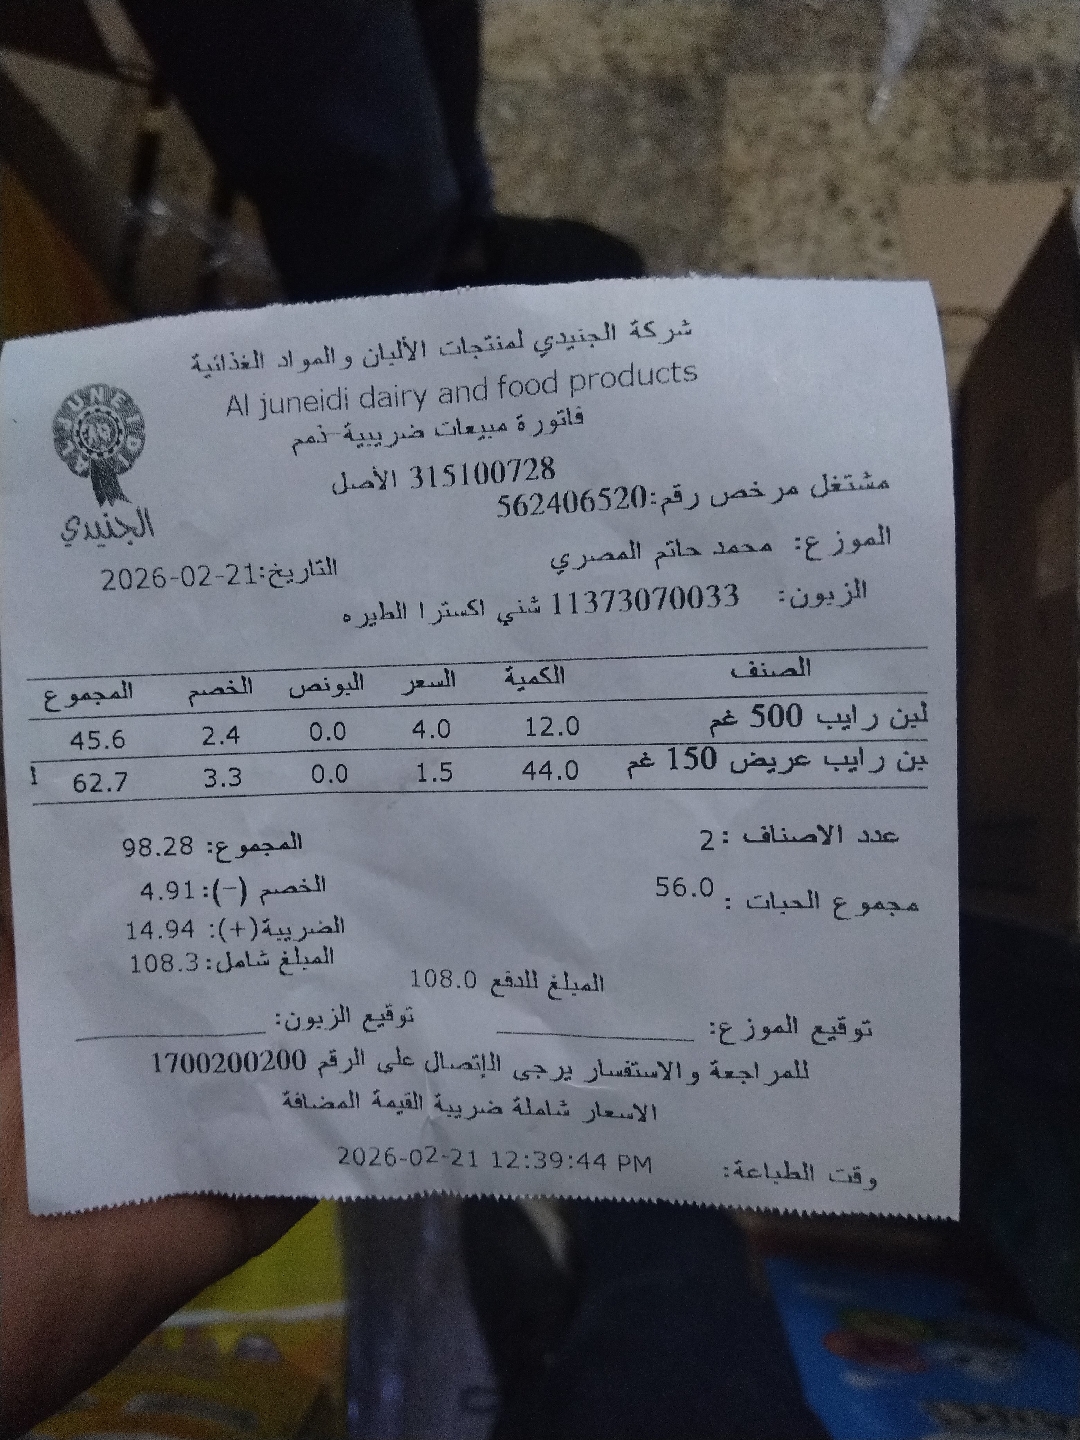 شركة الجنيدي لمنتجات الألبان والمواد الغذائية
Al juneidi dairy and food products
فاتورة مبيعات ضريبية-ذمم
315100728 الأصل
مشتغل مرخص رقم:562406520
الجنيدي
الموزع: محمد حاتم المصري
التاريخ:2026-02-21
الزبون: 11373070033 شني اكسترا الطيره
الصنف الكمية السعر البونص الخصم المجموع
لبن رايب 500 غم 12.0 4.0 0.0 2.4 45.6
بن رايب عريض 150 غم 44.0 1.5 0.0 3.3 62.7
عدد الاصناف :2
مجموع الحبات : 56.0
المجموع: 98.28
الخصم (-):4.91
الضريبة(+): 14.94
المبلغ شامل:108.3
المبلغ للدفع 108.0
توقيع الموزع: ______________ توقيع الزبون: ______________
للمراجعة والاستفسار يرجى الإتصال على الرقم 1700200200
الاسعار شاملة ضريبة القيمة المضافة
وقت الطباعة: 2026-02-21 12:39:44 PM